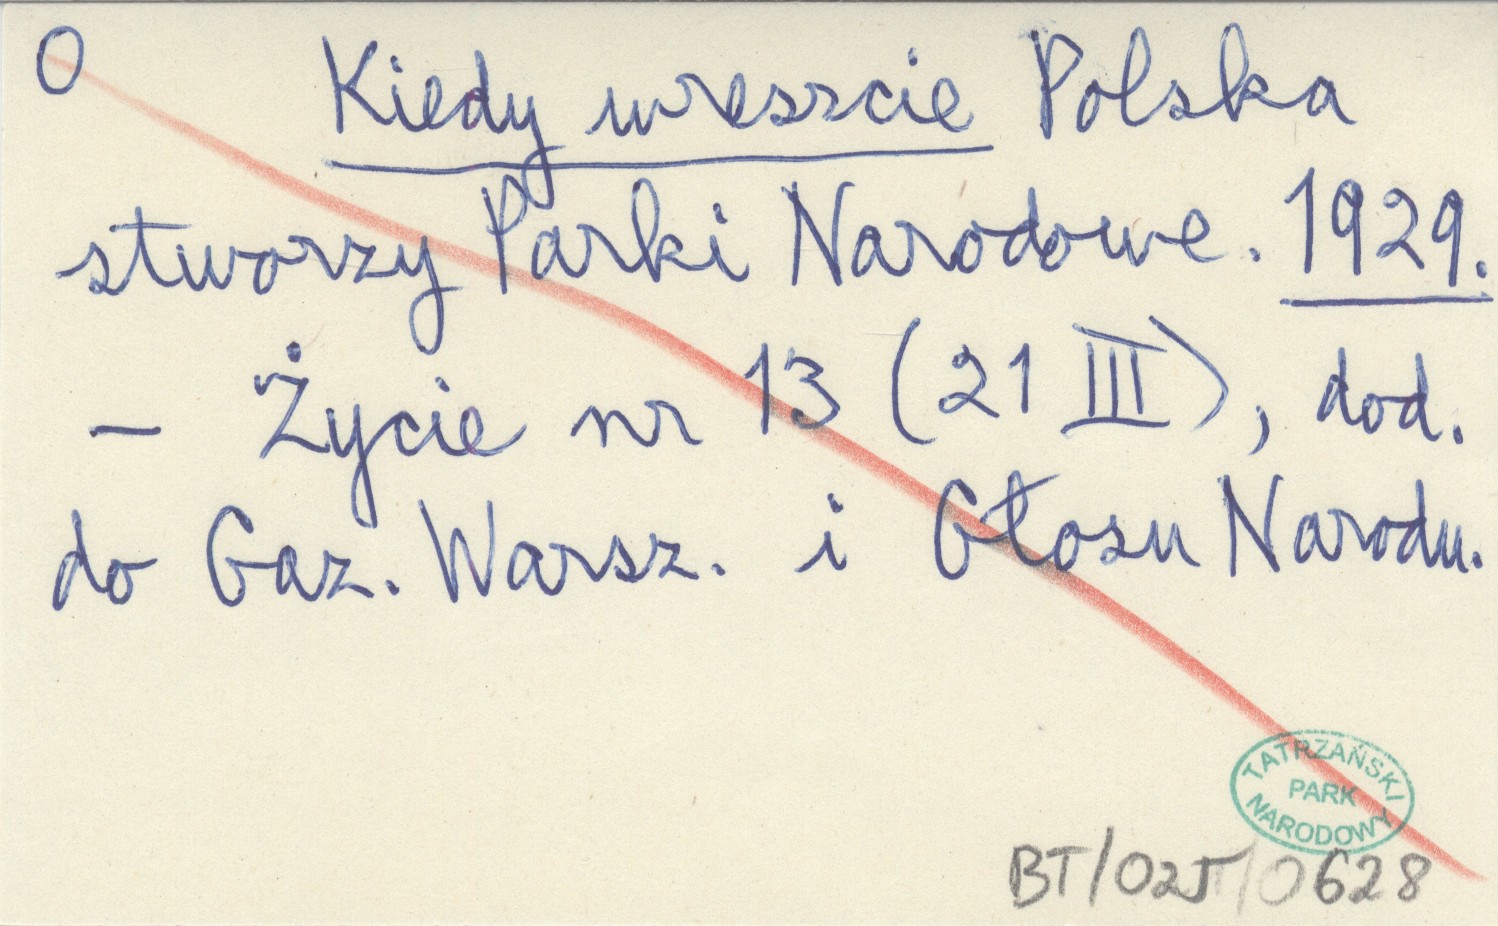 O Kiedy wreszcie Polska
stworzy Parki Narodowe. 1929.
– Życie nr 13 (21 III), dod.
do Gaz. Warsz. i Głosu Narodu.
TATRZAŃSKI
PARK
NARODOWY
BT/025/0628